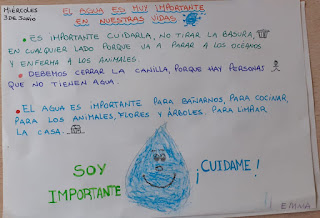 MIÉRCOLES
3 DE JUNIO
EL AGUA ES MUY IMPORTANTE
EN NUESTRAS VIDAS
• ES IMPORTANTE CUIDARLA, NO TIRAR LA BASURA,
EN CUALQUIER LADO PORQUE VA A PARAR A LOS OCÉANOS
Y ENFERMA A LOS ANIMALES.
• DEBEMOS CERRAR LA CANILLA, PORQUE HAY PERSONAS
QUE NO TIENEN AGUA.
• EL AGUA ES IMPORTANTE PARA BAÑARNOS, PARA COCINAR,
PARA LOS ANIMALES, FLORES Y ÁRBOLES. PARA LIMPIAR
LA CASA.
SOY
IMPORTANTE
¡CUIDAME!
EMMA